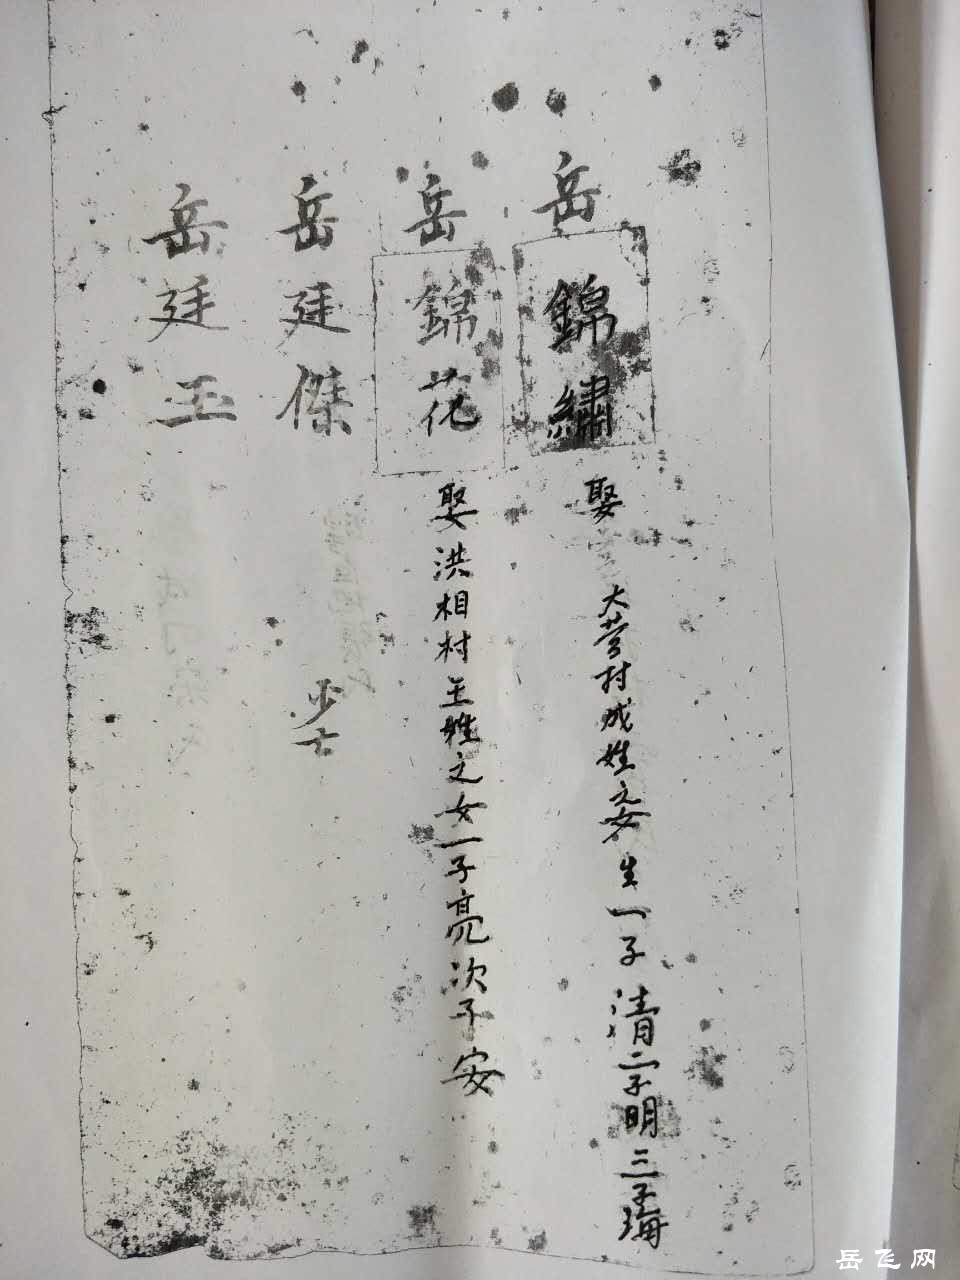 岳錦繡 娶 大营村成姓之女 生一子清二子明三子海
岳錦花 娶洪相村王姓之女一子亮次子安
岳廷傑 少亡
岳廷玉
岳飞网